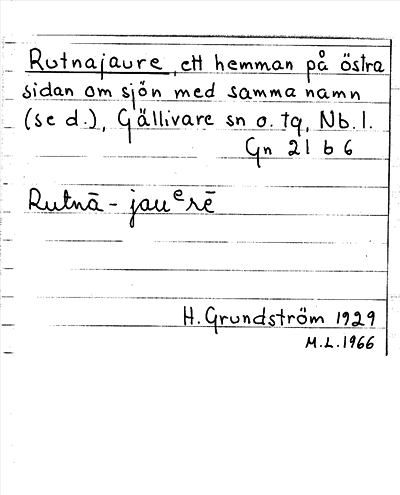 Rutnajaure, ett hemman på östra
sidan om sjön med samma namn
(se d.), Gällivare sn o. tg, Nb. l.
Gn 21 b 6
Rutnā - jauᵉrē
H. Grundström 1929
M.L. 1966